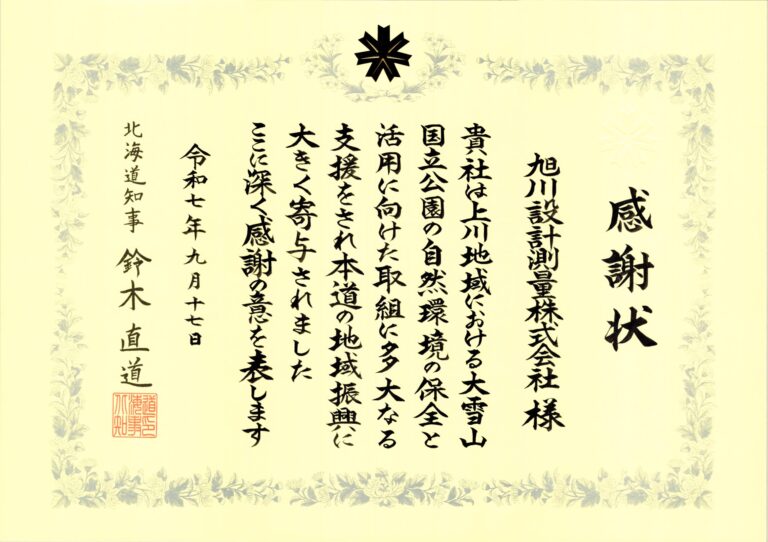 感謝状
旭川設計測量株式会社 様
貴社は上川地域における大雪山
国立公園の自然環境の保全と
活用に向けた取組に多大なる
支援をされ本道の地域振興に
大きく寄与されました
ここに深く感謝の意を表します
令和七年九月十七日
北海道知事 鈴木直道